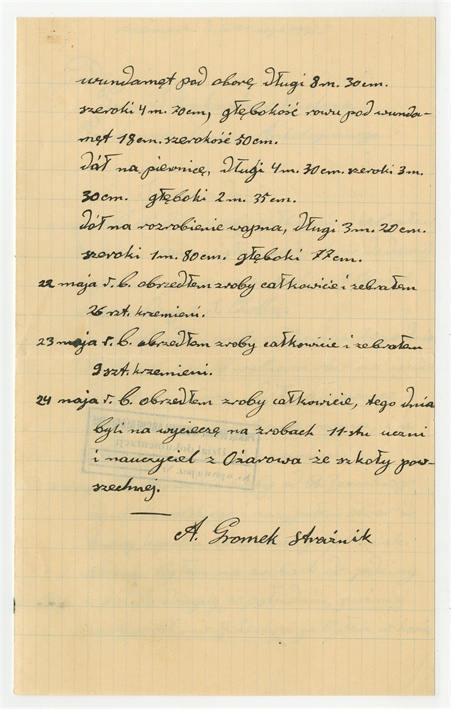 wundamęt pod oborę długi 8 m. 30 cm.
szeroki 4 m. 20 cm, głębokość rowu pod wunda-
męt 18 cm. szerokość 50 cm.
dół na piewnicę, długi 4 m. 30 cm. szeroki 3 m.
30 cm. głęboki 2 m. 35 cm.
dół na rozrobienie wapna, długi 3 m. 20 cm.
szeroki 1 m. 80 cm. głęboki 77 cm.
22 maja r. b. obrzedłem zroby całkowicie i zebrałem
26 szt. krzemieni.
23 maja r. b. obrzedłem zroby całkowicie i zebrałem
9 szt. krzemieni.
24 maja r. b. obrzedłem zroby całkowicie, tego dnia
byli na wycieczę na zrobach 11-stu uczni
i nauczyciel z Ożarowa ze szkoły pow-
szechnej.
A. Gromek strażnik